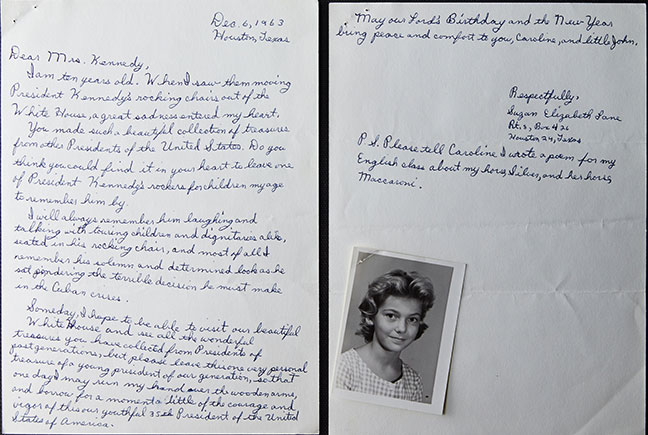 Dec. 6, 1963
Houston, Texas
Dear Mrs. Kennedy,
I am ten years old. When I saw them moving
President Kennedy's rocking chairs out of the
White House, a great sadness entered my heart.
You made such a beautiful collection of treasures
from other Presidents of the United States. Do you
think you could find it in your heart to leave one
of President Kennedy's rockers for children my age
to remember him by.
I will always remember him laughing and
talking with touring children and dignitaries alike,
seated in his rocking chair, and most of all I
remember his solemn and determined look as he
sat pondering the terrible decision he must make
in the Cuban crises.
Someday, I hope to be able to visit our beautiful
White House and see all the wonderful
treasures you have collected from Presidents of
past generations, but please leave this one very personal
treasure of a young president of our generation, so that
one day I may run my hand over the wooden arms,
and borrow for a moment a little of the courage and
vigor of this our youthful 35th President of the United
States of America.
May our Lord's Birthday and the New Year
bring peace and comfort to you, Caroline, and little John.
Respectfully,
Suzan Elizabeth Lane
Rt. 3, Box 426
Houston 24, Texas
P.S. Please tell Caroline I wrote a poem for my
English class about my horse, and her horse,
Maccaroni.